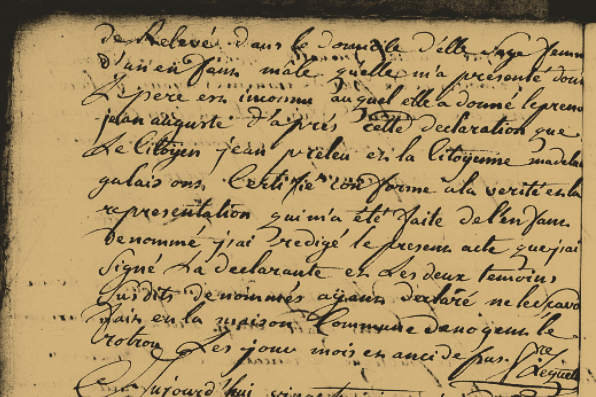 de Relevé dans le domicile d'elle sage femm
d'un enfant mâle quelle m'a présenté dont
Le pere est inconnu auquel elle a donné le preno
jean auguste d'aprés cette declaration que
Le Citoyen jean préleu et la Citoyenne madelai
galais ont Certifié conforme a la verité et la
representation qui m'a été faite de l'enfant
denommé j'ai redigé le present acte que j'ai
signé La declarante et Les deux temoins
susdits denommés ayant declaré ne le Scavo
fait en la maison Commune de nogent le
rotrou Les jour mois et an ci de sus
Aujourd'hui